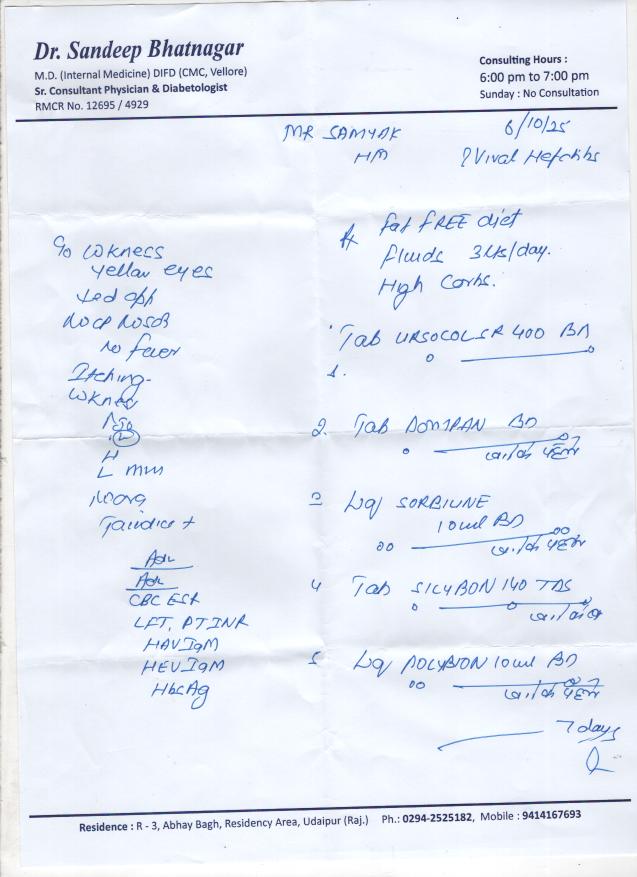 Dr. Sandeep Bhatnagar
M.D. (Internal Medicine) DIFD (CMC, Vellore)
Sr. Consultant Physician & Diabetologist
RMCR No. 12695 / 4929
Consulting Hours :
6:00 pm to 7:00 pm
Sunday : No Consultation
MR SAMYAK
6/10/25
HM
? Viral Hepatitis
c/o WKNess
yellow eyes
No CP No SOB
No fever
Itching
WKNess
L
H
L
Jaundice +
Adv
Adv
CBC ESR
LFT, PTINR
HAV IgM
HEV IgM
HbsAg
fat FREE diet
fluids 3 lts/day.
High Carbs.
1.
Tab URSOCOL SR 400 BD
2. Tab DOMPAN BD
3 Liq SORBILINE
10 ml BD
4 Tab SILYBON 140 TDS
5 Liq POLYBION 10 ml BD
7 days
Residence : R - 3, Abhay Bagh, Residency Area, Udaipur (Raj.) Ph.: 0294-2525182, Mobile : 9414167693